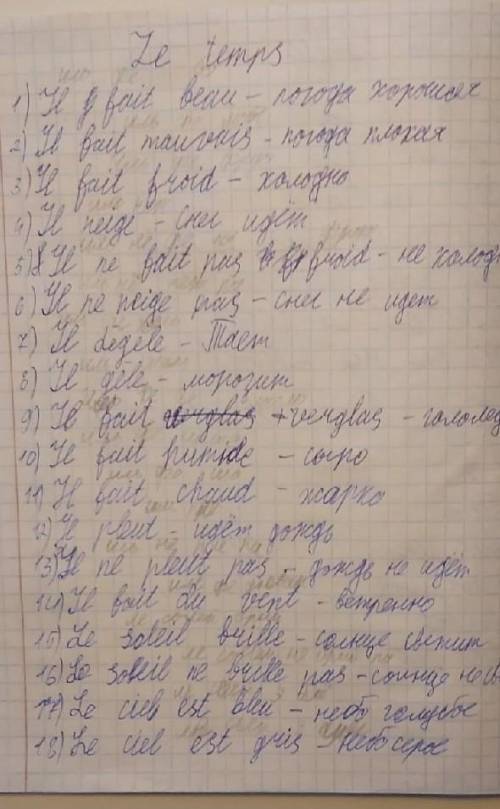 Le temps
1) Il fait beau - погода хорошая
2) Il fait mauvais - погода плохая
3) Il fait froid - холодно
4) Il neige - снег идёт
5) Il ne fait pas froid - не холодн
6) Il ne neige pas - снег не идет
7) Il dégele - Тает
8) Il gèle - морозит
9) Il fait verglas + verglas - гололед
10) Il fait humide - сыро
11) Il fait chaud - жарко
12) Il pleut - идёт дождь
13) Il ne pleut pas - дождь не идёт
14) Il fait du vent - ветренно
15) Le soleil brille - солнце светит
16) Le soleil ne brille pas - солнце не св
17) Le ciel est bleu - небо голубое
18) Le ciel est gris - небо серое